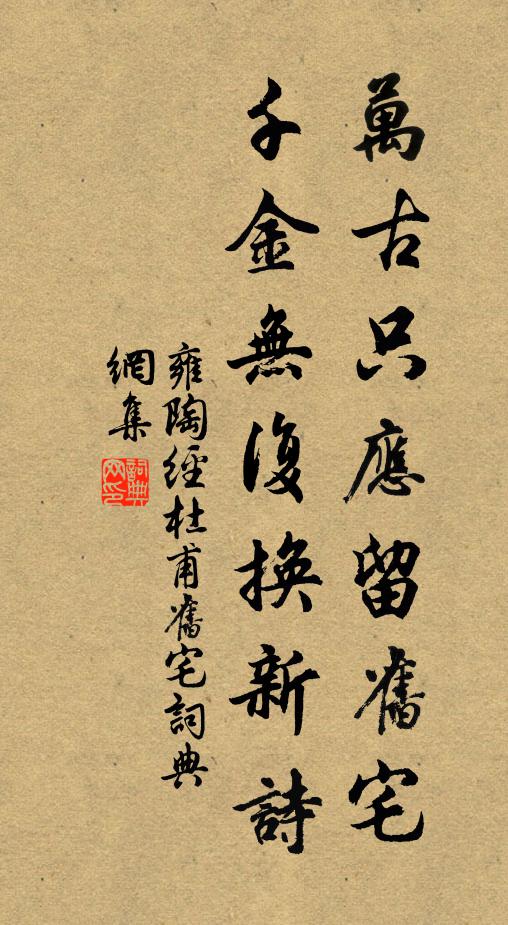 萬古只應留舊宅
千金無復換新詩
雍陶經杜甫舊宅詞典
網集
詞典網印